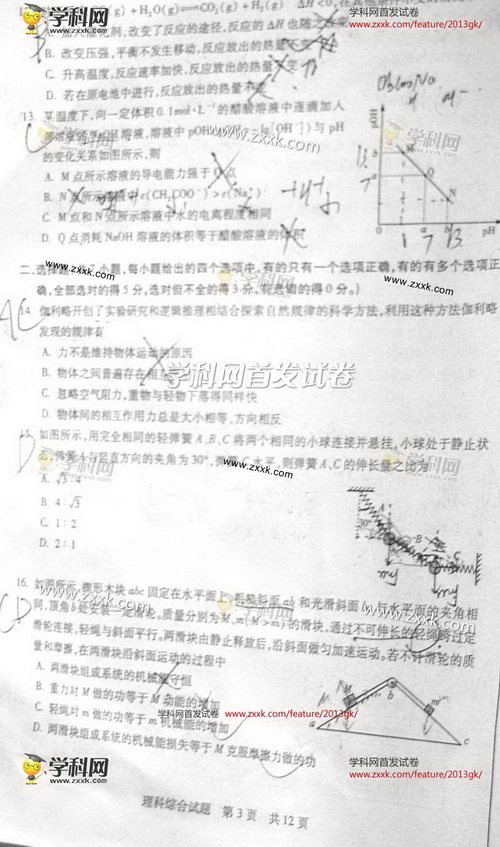 学科网首发试卷
www.zxxk.com/feature/2013gk/
(g)+H₂O(g)⇌CO₂(g)+H₂(g) ΔH<0
催化剂,改变了反应的途径,反应的ΔH也随之
B. 改变压强,平衡不发生移动,反应放出的热量不变
C. 升高温度,反应速率加快,反应放出的热量不变
D. 若在原电池中进行,反应放出的热量不变
13. 某温度下,向一定体积0.1mol·L⁻¹的醋酸溶液中逐滴加入
NaOH溶液,溶液中pOH lg[OH⁻])与pH
的变化关系如图所示,则
A. M点所示溶液的导电能力强于Q点
B. N点所示溶液中c(CH₃COO⁻)>c(Na⁺)
C. M点和N点所示溶液中水的电离程度相同
D. Q点消耗NaOH溶液的体积等于醋酸溶液的体积
CH₃COONa
M
Q
N
0
a
b
pH
1 7 13
二、选择题 题,每小题给出的四个选项中,有的只有一个选项正确,有的有多个选项正
确,全部选对的得5分,选对但不全的得3分,有选错的得0分。)
www.zxxk.com
AC
14. 伽利略开创了实验研究和逻辑推理相结合探索自然规律的科学方法,利用这种方法伽利略
发现的规律有
A. 力不是维持物体运动的原因
B. 物体之间普遍存在相互
C. 忽略空气阻力,重物与轻物下落得同样快
D. 物体间的相互作用力总是大小相等、方向相反
学科网首发试卷
D
15. 如图所示,用完全相同的轻弹簧A、B、C将两个相同的小球连接并悬挂,小球处于静止状
态,弹簧A与竖直方向的夹角为30°,弹簧C水平,则弹簧A、C的伸长量之比为
www.zxxk.com
A. √3:4
B. 4:√3
C. 1:2
D. 2:1
A
30°
B
C
mg
mg
CD
16. 如图所示,楔形木块abc固定在水平面上,粗糙斜面ab和光滑斜面bc与水平面的夹角相
同,顶角b处安装一定滑轮。质量分别为M、m(M>m)的滑块,通过不可伸长的轻绳跨过定
滑轮连接,轻绳与斜面平行。两滑块由静止释放后,沿斜面做匀加速运动。若不计滑轮的质
量和摩擦,在两滑块沿斜面运动的过程中
www.zxxk.com
A. 两滑块组成系统的机械能守恒
B. 重力对M做的功等于M动能的增加
C. 轻绳对m做的功等于m机械能的增加
D. 两滑块组成系统的机械能损失等于M克服摩擦力做的功
学科网首发试卷
www.zxxk.com/feature/2013gk/
M
b
m
a
c
学科网
www.zxxk.com
理科综合试题 第3页 共12页
学科网首发试卷
www.zxxk.com/feature/2013gk/